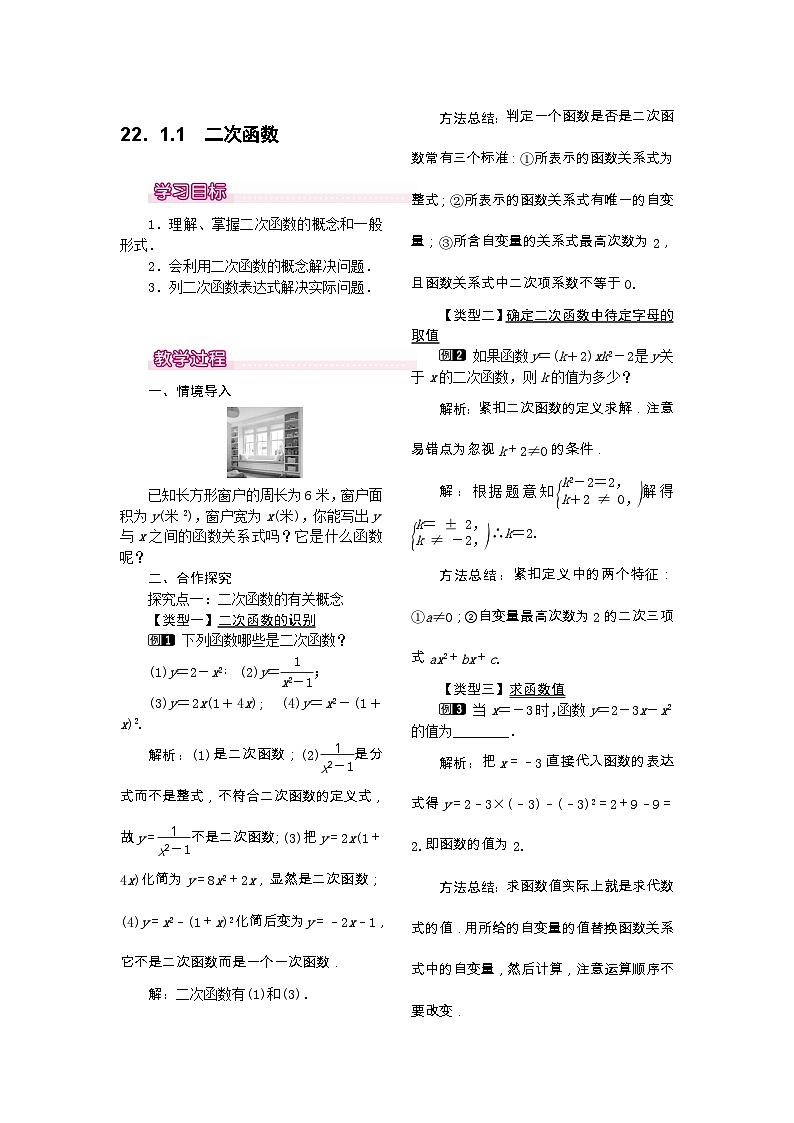 22．1.1　二次函数
学习目标
1．理解、掌握二次函数的概念和一般
形式．
2．会利用二次函数的概念解决问题．
3．列二次函数表达式解决实际问题．
教学过程
一、情境导入
已知长方形窗户的周长为6米，窗户面
积为y(米²)，窗户宽为x(米)，你能写出y
与x之间的函数关系式吗？它是什么函数
呢？
二、合作探究
探究点一：二次函数的有关概念
【类型一】二次函数的识别
例1 下列函数哪些是二次函数？
(1)y＝2－x²；(2)y＝1/(x²－1)；
(3)y＝2x(1＋4x)；(4)y＝x²－(1＋
x)².
解析：(1)是二次函数；(2)1/(x²－1)是分
式而不是整式，不符合二次函数的定义式，
故y＝1/(x²－1)不是二次函数；(3)把y＝2x(1＋
4x)化简为y＝8x²＋2x，显然是二次函数；
(4)y＝x²－(1＋x)²化简后变为y＝－2x－1，
它不是二次函数而是一个一次函数．
解：二次函数有(1)和(3)．
方法总结：判定一个函数是否是二次函
数常有三个标准：①所表示的函数关系式为
整式；②所表示的函数关系式有唯一的自变
量；③所含自变量的关系式最高次数为2，
且函数关系式中二次项系数不等于0.
【类型二】确定二次函数中待定字母的
取值
例2 如果函数y＝(k＋2)xk²－2是y关
于x的二次函数，则k的值为多少？
解析：紧扣二次函数的定义求解．注意
易错点为忽视k＋2≠0的条件．
解：根据题意知{k²－2＝2，k＋2≠0，解得
{k＝±2，k≠－2，∴k＝2.
方法总结：紧扣定义中的两个特征：
①a≠0；②自变量最高次数为2的二次三项
式ax²＋bx＋c.
【类型三】求函数值
例3 当x＝－3时，函数y＝2－3x－x²
的值为________．
解析：把x＝－3直接代入函数的表达
式得y＝2－3×(－3)－(－3)²＝2＋9－9＝
2.即函数的值为2.
方法总结：求函数值实际上就是求代数
式的值．用所给的自变量的值替换函数关系
式中的自变量，然后计算，注意运算顺序不
要改变．